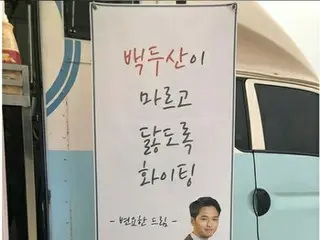 백두산이
마르고
닳도록
화이팅
- 변요한 드림 -